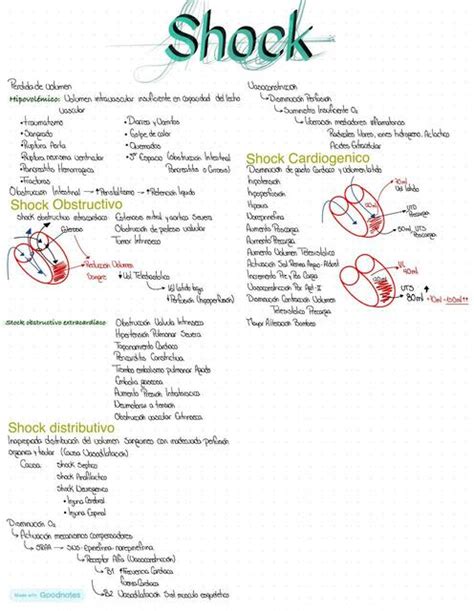 Shock
Perdida de volumen
Hipovolémico: Volumen intravascular insuficiente en capacidad del lecho
vascular
• traumatismo
• Sangrado
• Ruptura Aorta
• Ruptura aneurisma ventricular
• Pancreatitis Hemorragica
• Fracturas
• Diarrea y Vomitos
• Golpe de calor
• Quemados
• 3º Espacio (Obstruccion Intestinal
Pancreatitis o Cirrosis)
Obstruccion Intestinal → Peristaltismo → Retencion liquido
Shock Obstructivo
Shock obstructivo intracardiaco
Estenosis mitral y aortica Severa
Obstruccion de protesis valvular
Tumor Intrinseco
Estenosis
Reduccion Volumen
Sangre
↓ Vol Telediastolico
↳ Vol latido bajo
↓ Perfusion (Hipoperfusion)
Shock obstructivo extracardiaco
Obstruccion Valvula Intrinseco
Hipertension Pulmonar Severa
Taponamiento Cardiaco
Pericarditis Constrictiva
Trombo embolismo pulmonar Agudo
Embolia gaseosa
Aumento Presion Intratoracica
Neumotorax a tension
Obstruccion vascular Extrinseca
Shock distributivo
Inapropiada distribucion del volumen Sanguineo con inadecuada perfusion
organica y tisular (Causa Vasodilatacion)
Causa
Shock Septico
Shock Anafilactico
Shock Neurogenico
• Injuria Cerebral
• Injuria Espinal
Disminucion O₂
↳ Activacion mecanismos compensadores
↳ SRAA → SNS-Epinefrina-norepinefrina
↳ Receptor Alfa (Vasoconstriccion)
↳ B1 ↑Frecuencia Cardiaca
fuerza Cardiaca
↳ B2 Vasodilatacion Sist musculo esqueletico
Vasoconstriccion
↳ Disminucion Perfusion
↳ Suministro Insuficiente O₂
↳ liberacion mediadores inflamatorios
Radicales libres, iones hidrogeno, Ac.lactico
Acidosis Extracelular
Shock Cardiogenico
Disminucion de gasto Cardiaco y volumen latido
Hipotension
Hipoperfusion
Hipoxia
Norepinefrina
Aumento Poscarga
Aumento Precarga
Aumento Volumen Telesistolico
Activacion Sist Renina Angio-Aldost
Incremento Pre y Pos Carga
Vasoconstriccion Por Agt-II
Disminucion Contraccion Volumen
Telesistolico Precarga
Mayor Alteracion Bombeo
70ml
Vol latido
120ml
VTD
Precarga
50ml VTS
Poscarga
VL
40ml
VTS ↑
80ml
Made with Goodnotes